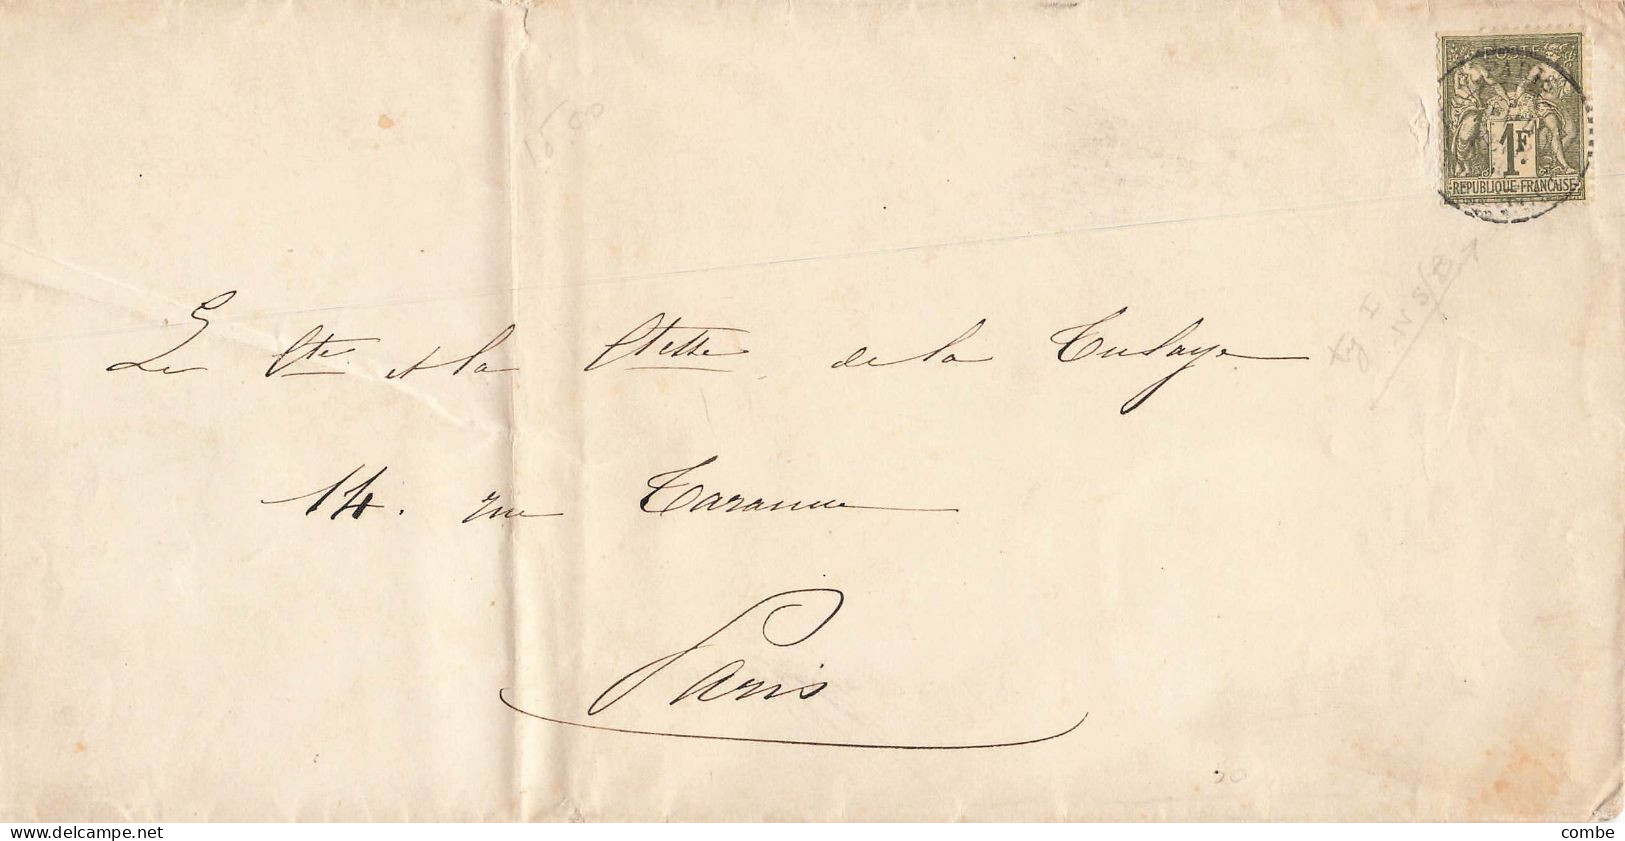 POSTE
PARIS
1F
REPUBLIQUE FRANÇAISE
15.00
Le Cte et la Ctesse de la Tulaye
ty I
N s/B
14. rue Taranne
Paris
50
delcampe.net
combe